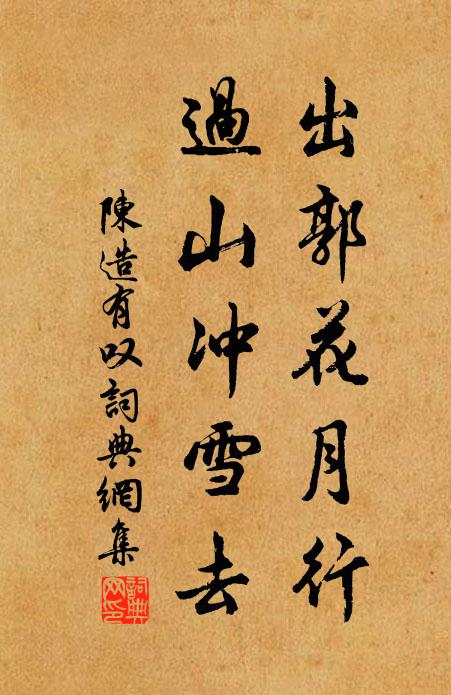 出郭花月行
過山冲雪去
陳造有叹詞典網集
詞典网印